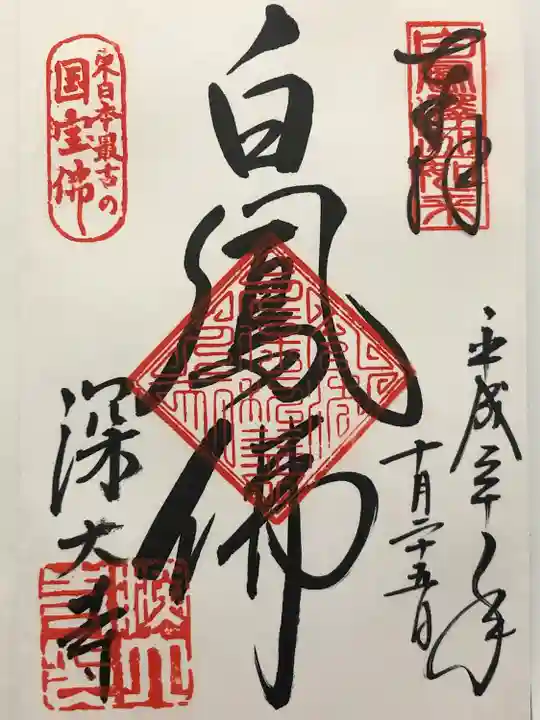 奉拝
平成三十年
十月二十五日
白鳳佛
東日本最古の
国宝佛
深大寺